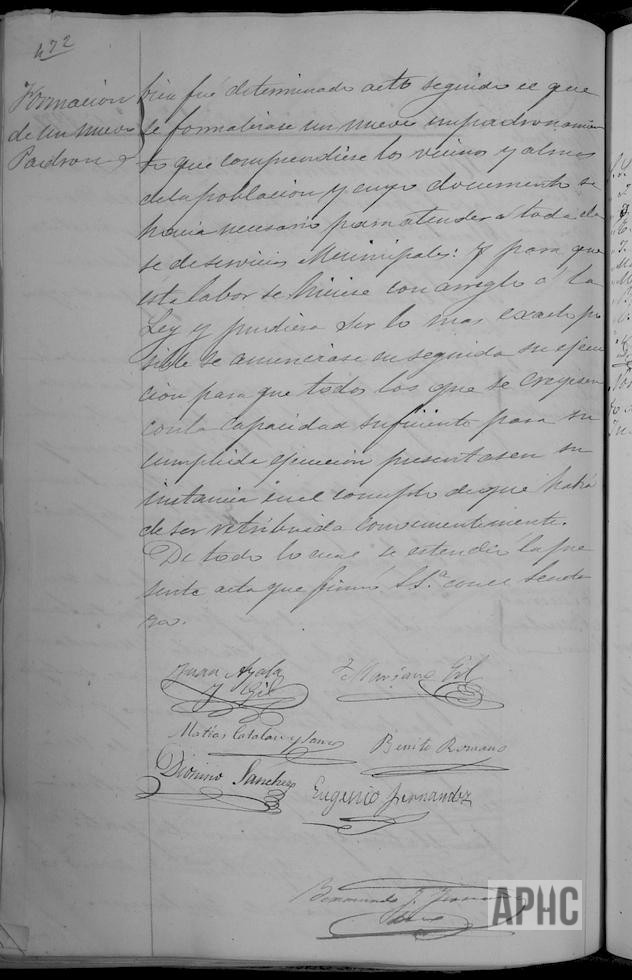 472
Formacion
de un nuevo
Padron
bien fué determinado acto seguido el que
se formalizase un nuevo empadronamien
to que comprendiese los vecinos y almas
de la poblacion y cuyo documento se
hacia necesario para atender a toda cla
se de servicios Municipales: Y para que
esta labor se hiciese con arreglo á la
Ley y pudiera ser lo mas exacto po
sible se anunciase en seguida su ejecu
cion para que todos los que se creyesen
con la capacidad suficiente para su
cumplida ejecucion presentasen su
instancia en el concepto de que habrá
de ser retribuida convenientemente.
De todo lo cual se estendió la pre
sente acta que firmó S.Sª con el Secreta
rio.
Juan Ayala
y Gil
Mariano Gil
Matías Catalan y Sanz
Benito Romano
Dionino Sanchez
Eugenio Fernandez
APHC